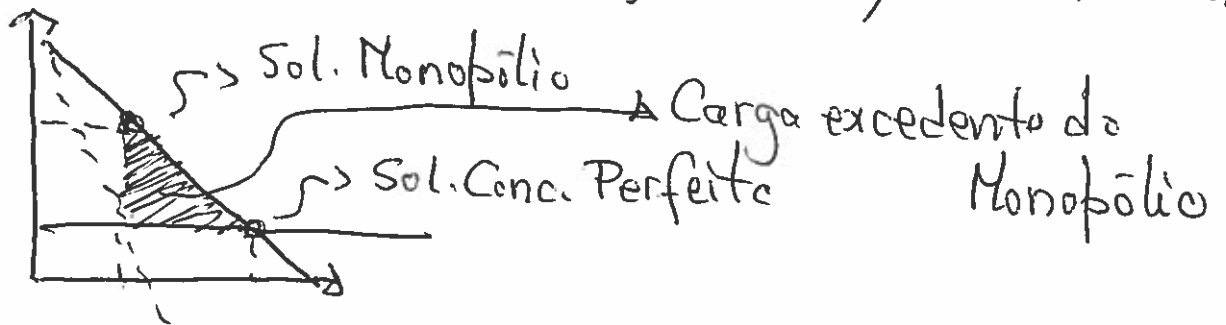 Sol. Monopólio
Carga excedento do
Monopólio
Sol. Conc. Perfeita